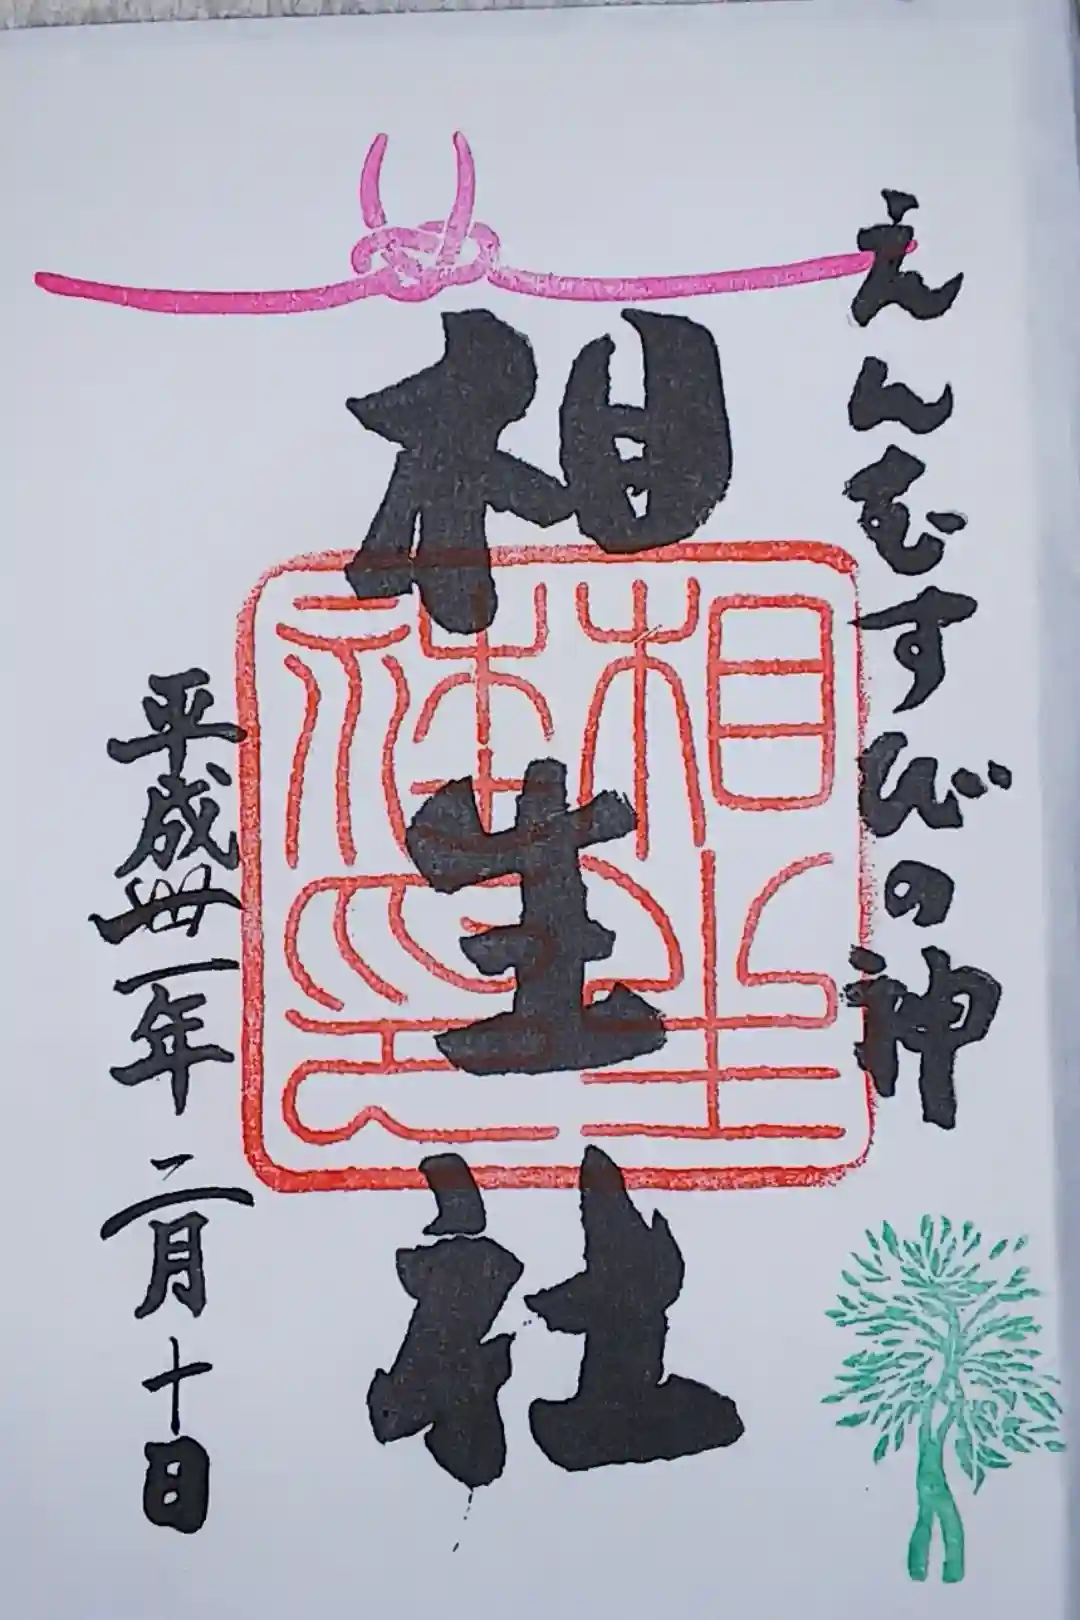 えんむすびの神
相生社
平成卅一年二月十日